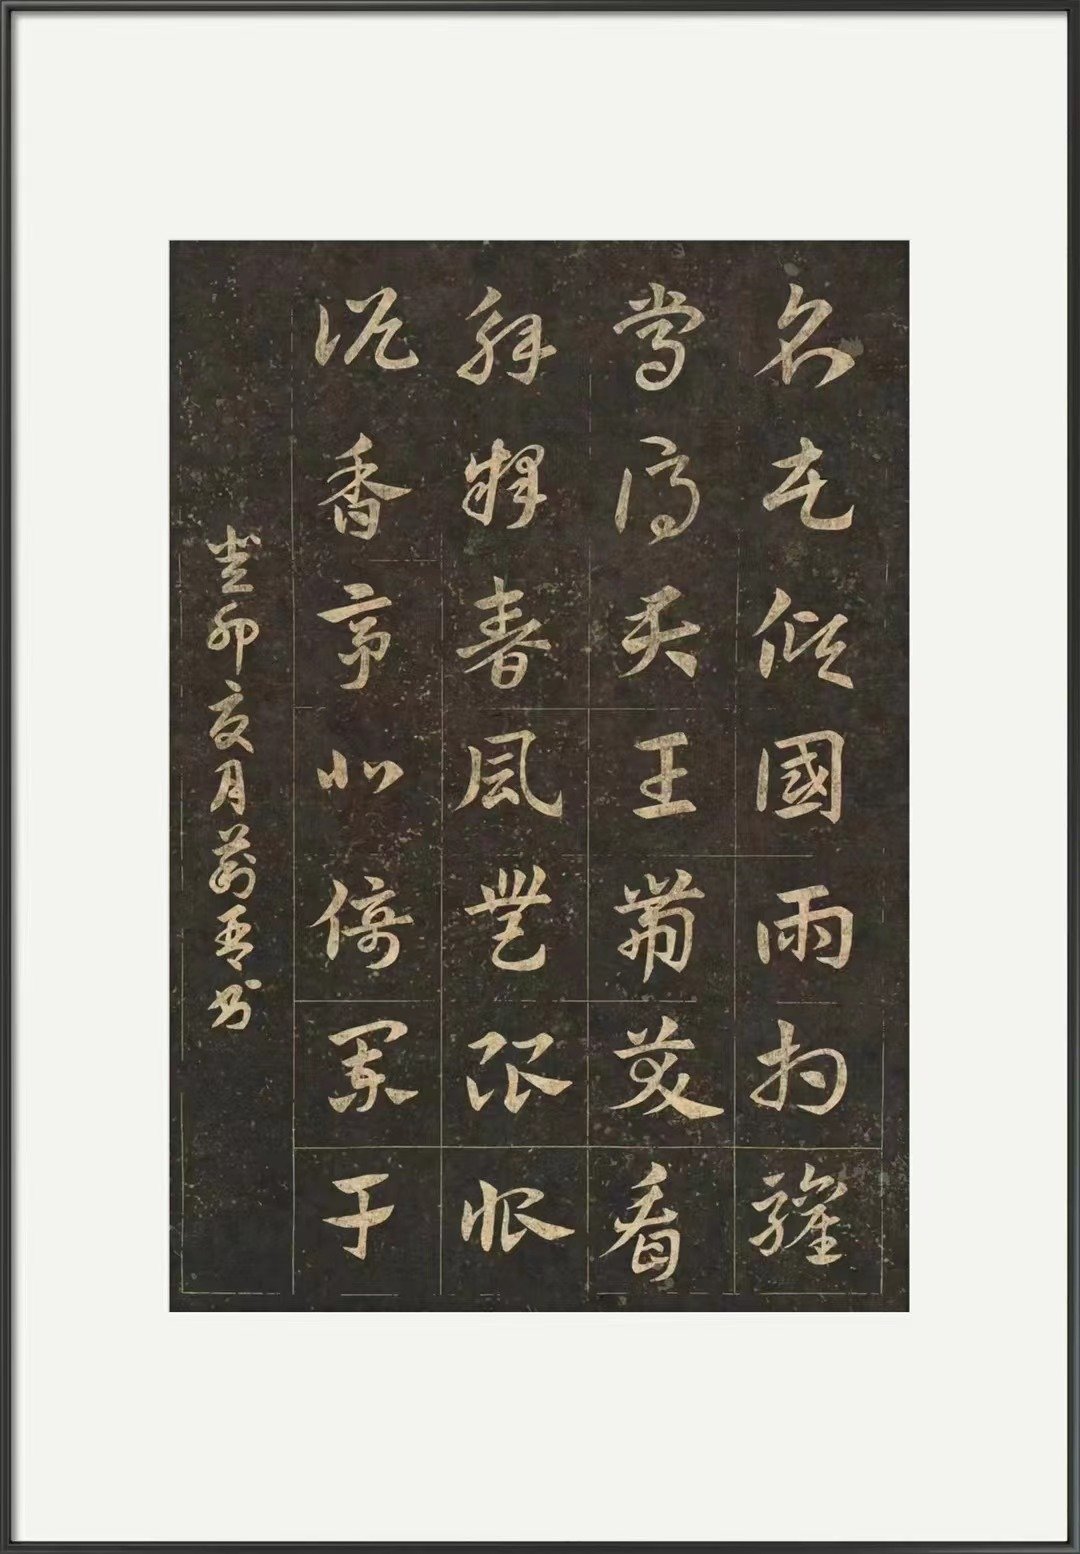 名花傾國兩相歡
常得君王帶笑看
解釋春風無限恨
沉香亭北倚闌干
癸卯夏月书